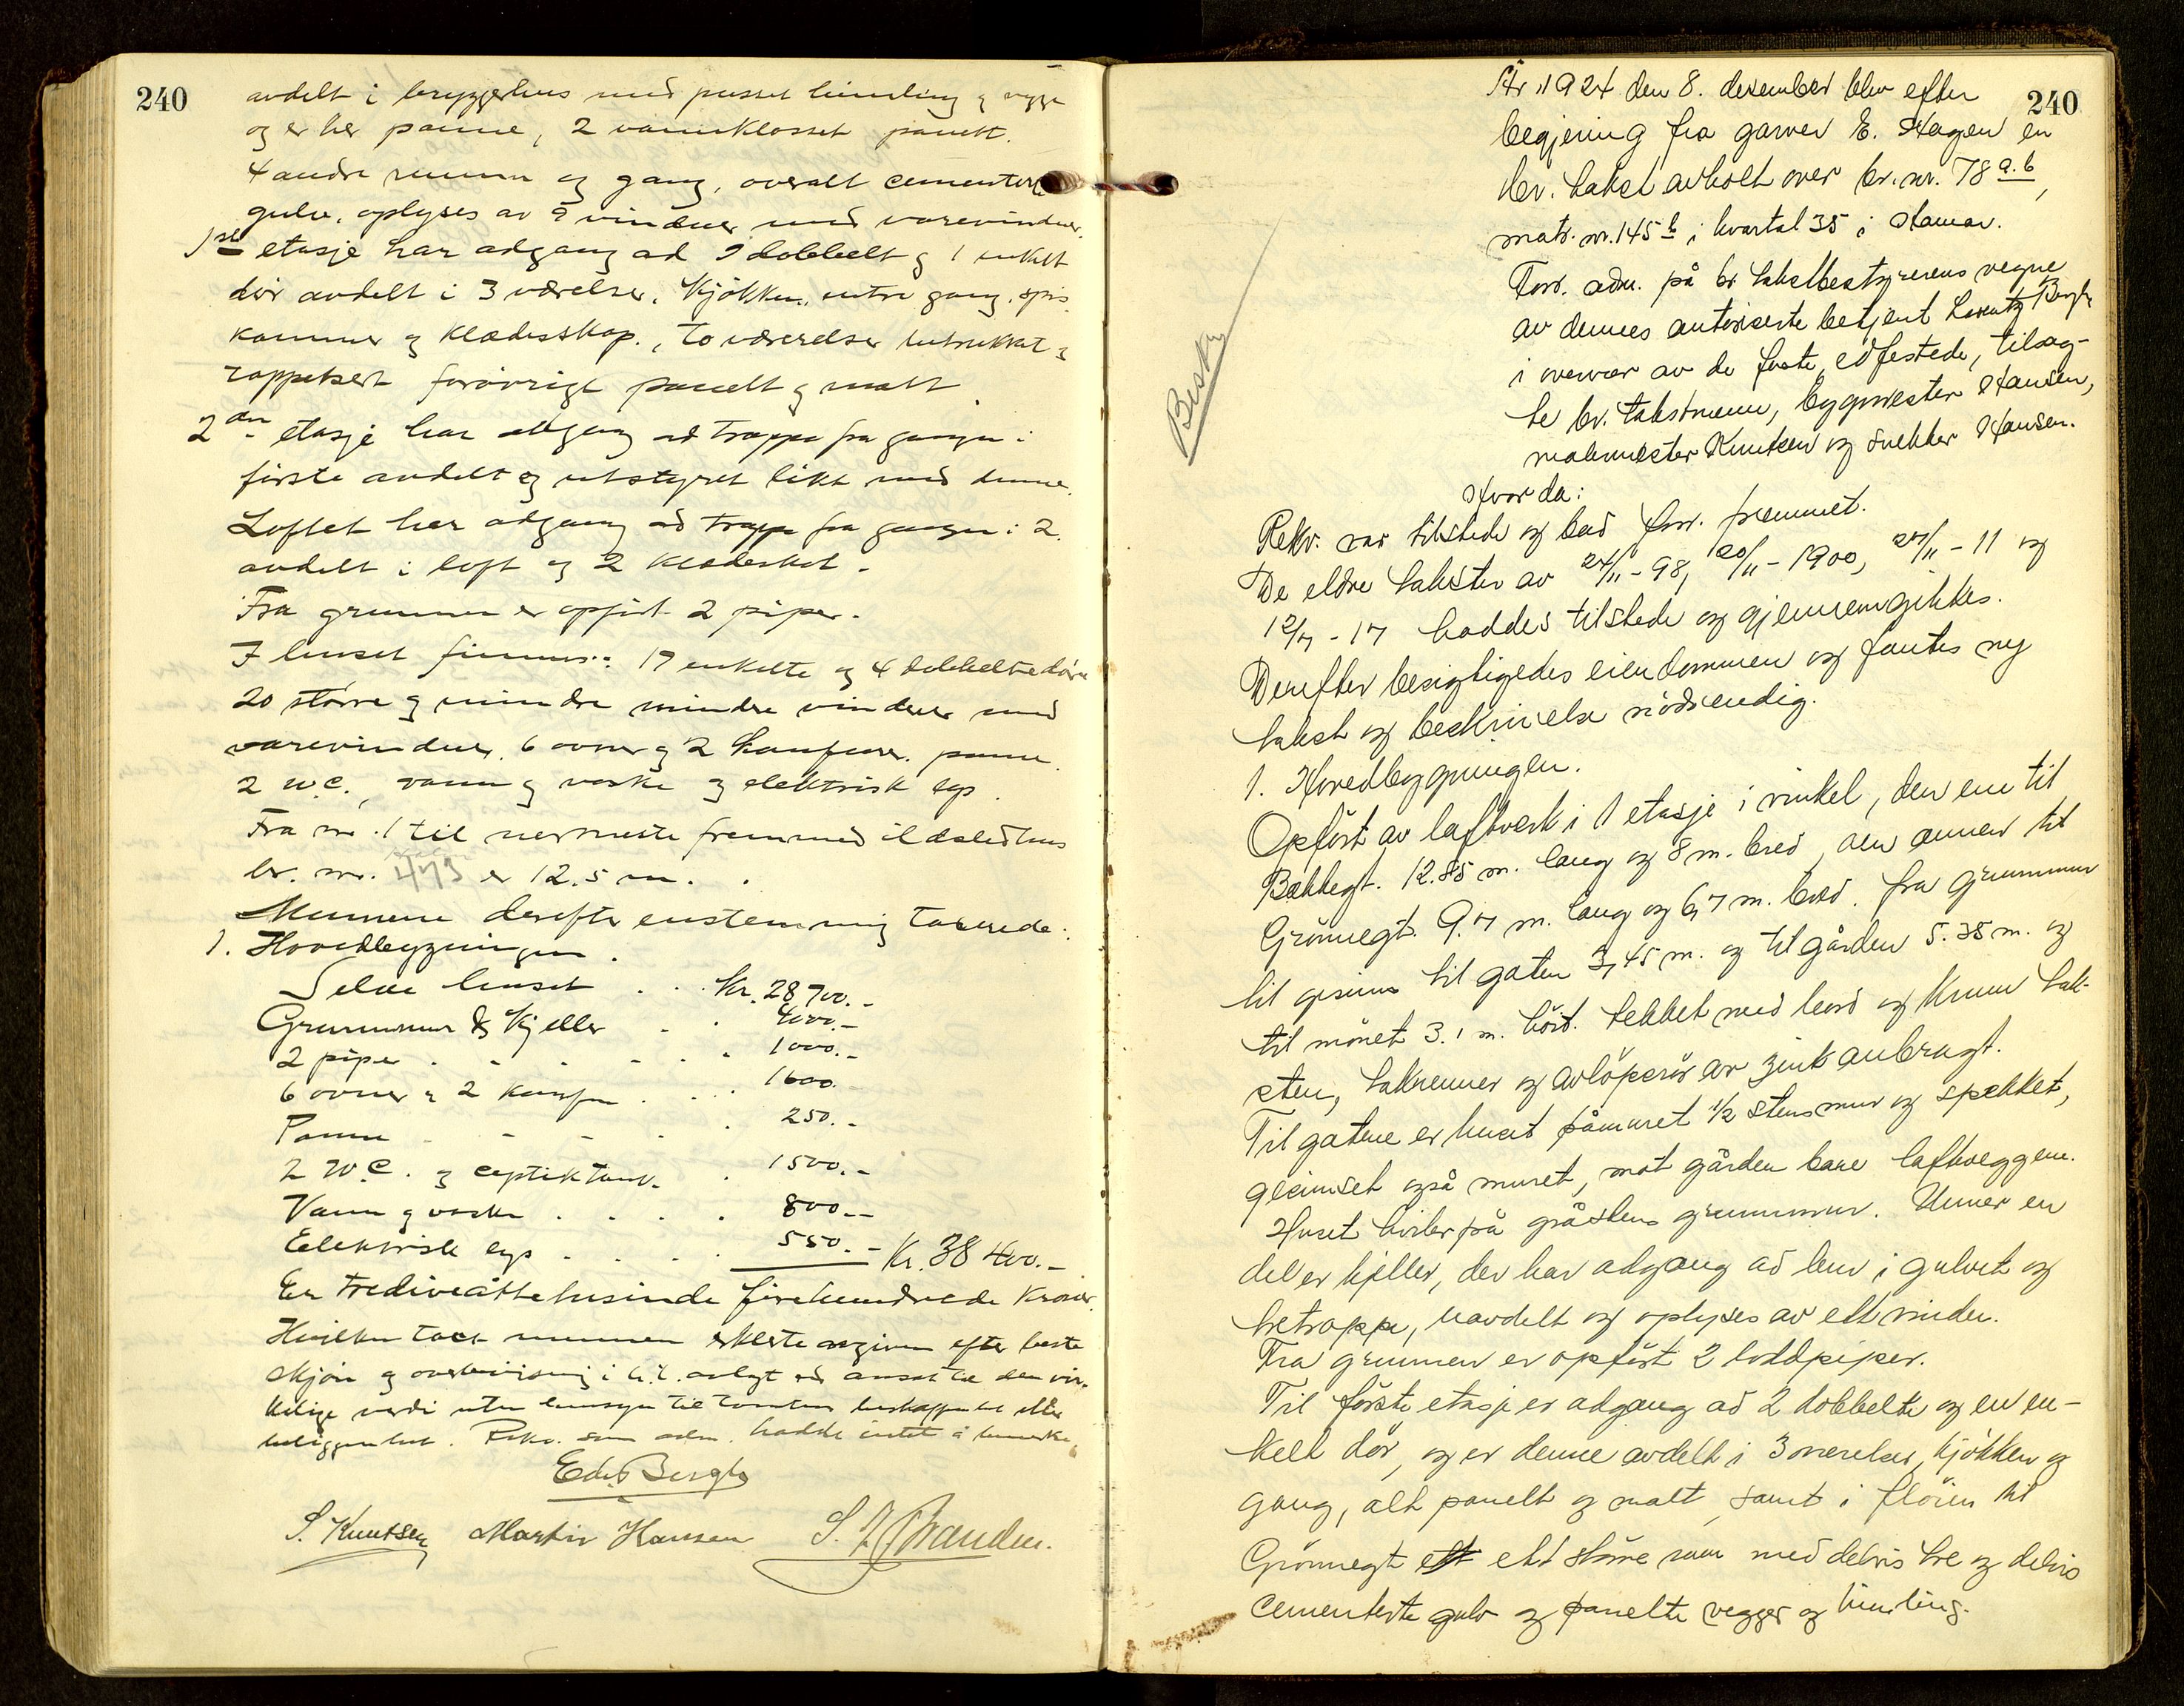 240
avdelt i bryggerhus med pusset himling og vegge
og er her panne, 2 vannklosset panelt.
4 andre rumm og gang, overalt cementert
gulv. oplyses av 9 vinduer med varevinduer.
1ste etasje har adgang ad 2 dobbelt og 1 enkelt
dør avdelt i 3 værelser, kjøkken, entre gang, spis
kammer og klædesskap., to værelser betrukket og
tappetsert forøvrigt panelt og malt.
2den etasje har adgang ad trappe fra gangen i
første avdelt og utstyret likt med denne.
Loftet har adgang ad trappe fra gangen i 2.
avdelt i loft og 2 klæderkot.
Fra grunnen er opført 2 piper.
I huset finnes: 17 enkelte og 4 dobbelte døre
20 større og mindre mindre vinduer med
varevinduer, 6 ovner og 2 komfurer. panne
2 w.c., vann og vaske og elektrisk lys.
Fra nr. 1 til nermeste fremmed ildstedhus
br. nr. 473 er 12.5 m.
Mennene derefter enstemmig taxerede:
1. Hovedbygningen.
Selve huset . . Kr. 28700.-
Grunnmur & Kjeller . . 4000.-
2 piper . . . . . . 1000.-
6 ovner & 2 komfur . . . 1600.
Panne . . . . . 250.-
2 W.C. og ceptiktank . 1500.-
Vann og vaske . . . . 800.-
Elektrisk lys . . . . 550.- Kr. 38400.-
Er trediveåttetusinde firehundrede kroner.
Hvilken taxt mennene erklerte avgiven efter beste
skjøn og overbevisning i h.t. avlagt ed ansat til den vir-
kelige verdi uten hensyn til tomtens beskaffenhet eller
beliggenhet. Rekv. som adm. hadde intet å bemerke.
Edv. Bergby
S. Knutsen Martin Hansen S. J. Stranden.
240
År 1924 den 8. desember blev efter
begjering fra garver E. Hagen en
br. takst avholt over br. nr. 78 a.b,
matr. nr. 145 b i kvartal 35 i Hamar.
Forr. adm. på br. takstbestyrerens vegne
av dennes autoriserte betjent Lorentz Bergby
i overvær av de faste edfestede, tilsag-
te br. takstmenn, byggmester Hansen,
malermester Knutsen og snekker Hansen.
Hvor da:
Beskr.
Rekv. var tilstede og bad forr. fremmet.
De eldre takster av 24/11-98, 20/11-1900, 27/11-11 og
12/7-17 haddes tilstede og gjennemgikkes.
Derefter besigtigedes eiendommen og fantes ny
takst og beskrivelse nødvendig.
1. Hovedbygningen.
Opført av laftverk i 1 etasje i vinkel, den ene til
Bækkegt. 12.85 m. lang og 8 m. bred, den annen til
Grønnegt. 9.7 m. lang og 6,7 m. bred. fra grunnmur
til gesims til gaten 3,45 m. og til gården 5.35 m. og
til mønet 3.1 m. høit. tekket med bord og krum tak-
sten, takrenner og avløpsrør av zink anbragt.
Til gatene er huset påmuret 1/2 stens mur og spekket,
gesimset også muret, mot gården bare laftveggene.
Huset hviler på gråstens grunnmur. Under en
del er kjeller, der har adgang ad lem i gulvet og
tretrappe, uavdelt og oplyses av ett vindu.
Fra grunnen er opført 2 loddpiper.
Til første etasje er adgang ad 2 dobbelte og en en-
kelt dør, og er denne avdelt i 3 værelser, kjøkken og
gang, alt panelt og malt, samt i fløien til
Grønnegt ett større rum med delvis tre og delvis
cementerte gulv og panelte vegger og himling.